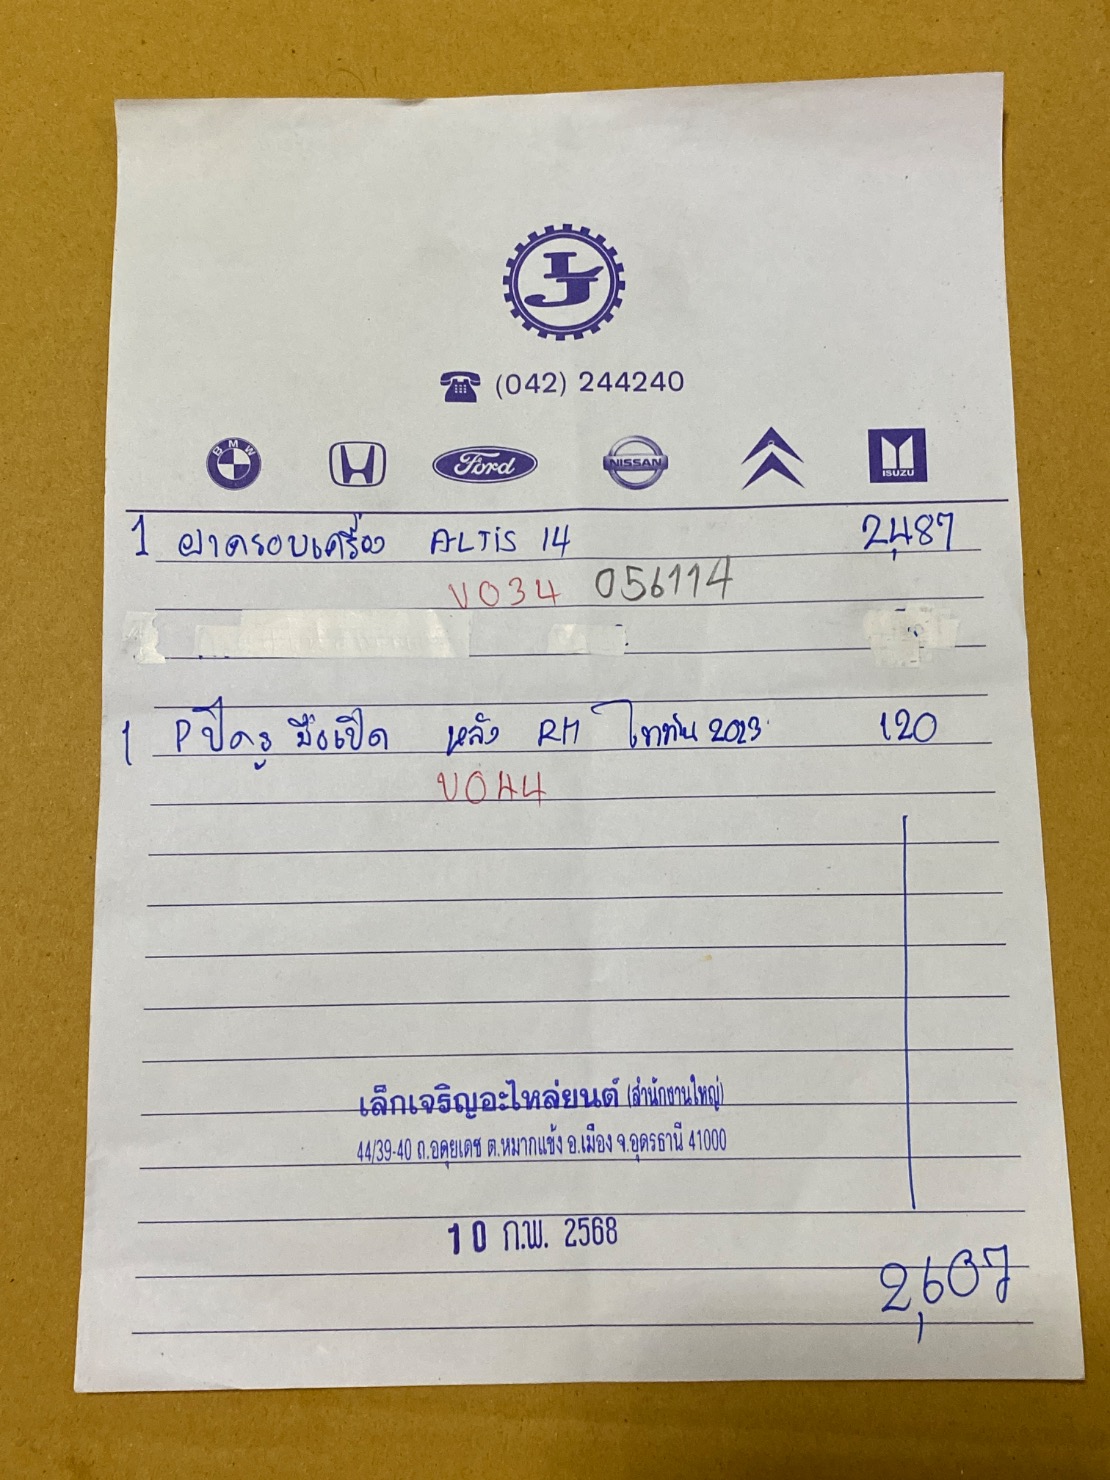 LJ
(042) 244240
BMW Ford NISSAN ISUZU
1 ฝาครอบเครื่อง ALTIS 14 2,487
V034 056114
1 Pปิดรู มือเปิด หลัง RH ไททัน 2023 120
V044
เล็กเจริญอะไหล่ยนต์ (สำนักงานใหญ่)
44/39-40 ถ.อดุยเดช ต.หมากแข้ง อ.เมือง จ.อุดรธานี 41000
10 ก.พ. 2568
2,607